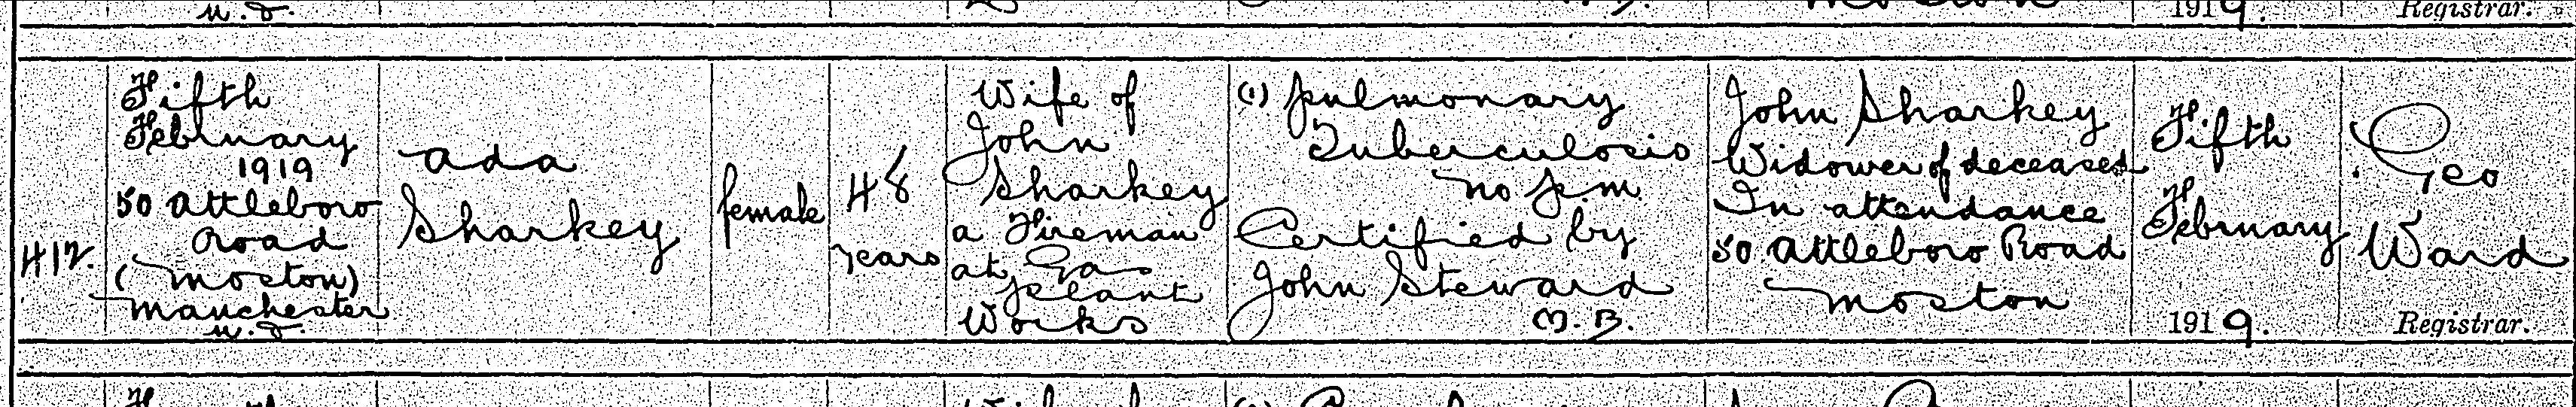 u.d.
1919.
Registrar.
412.
Fifth
February
1919
50 Attleboro
Road
(Moston)
Manchester
u.d.
Ada
Sharkey
female
48
years
Wife of
John
Sharkey
a Fireman
at Gas
Plant
Works
(1) Pulmonary
Tuberculosis
No P.m.
Certified by
John Steward
M.B.
John Sharkey
Widower of deceased
In attendance
50 Attleboro Road
Moston
Fifth
February
1919.
Geo
Ward
Registrar.